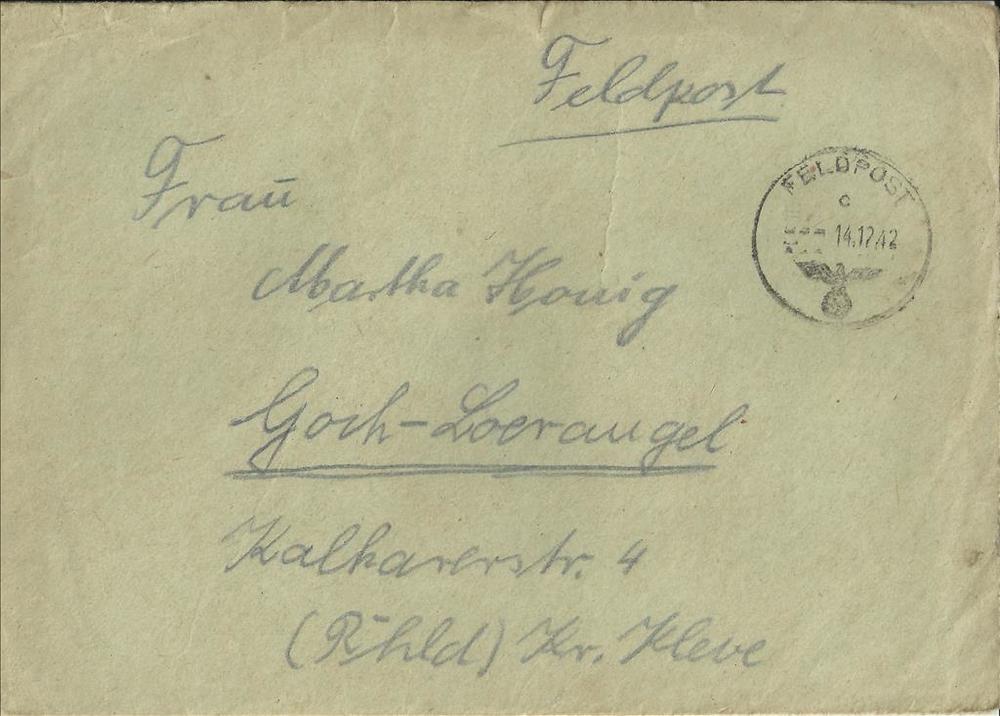 Feldpost
FELDPOST
c
14.12.42
Frau
Martha Honig
Goch-Loerangel
Kalkarerstr. 4
(Rhld) Kr. Kleve